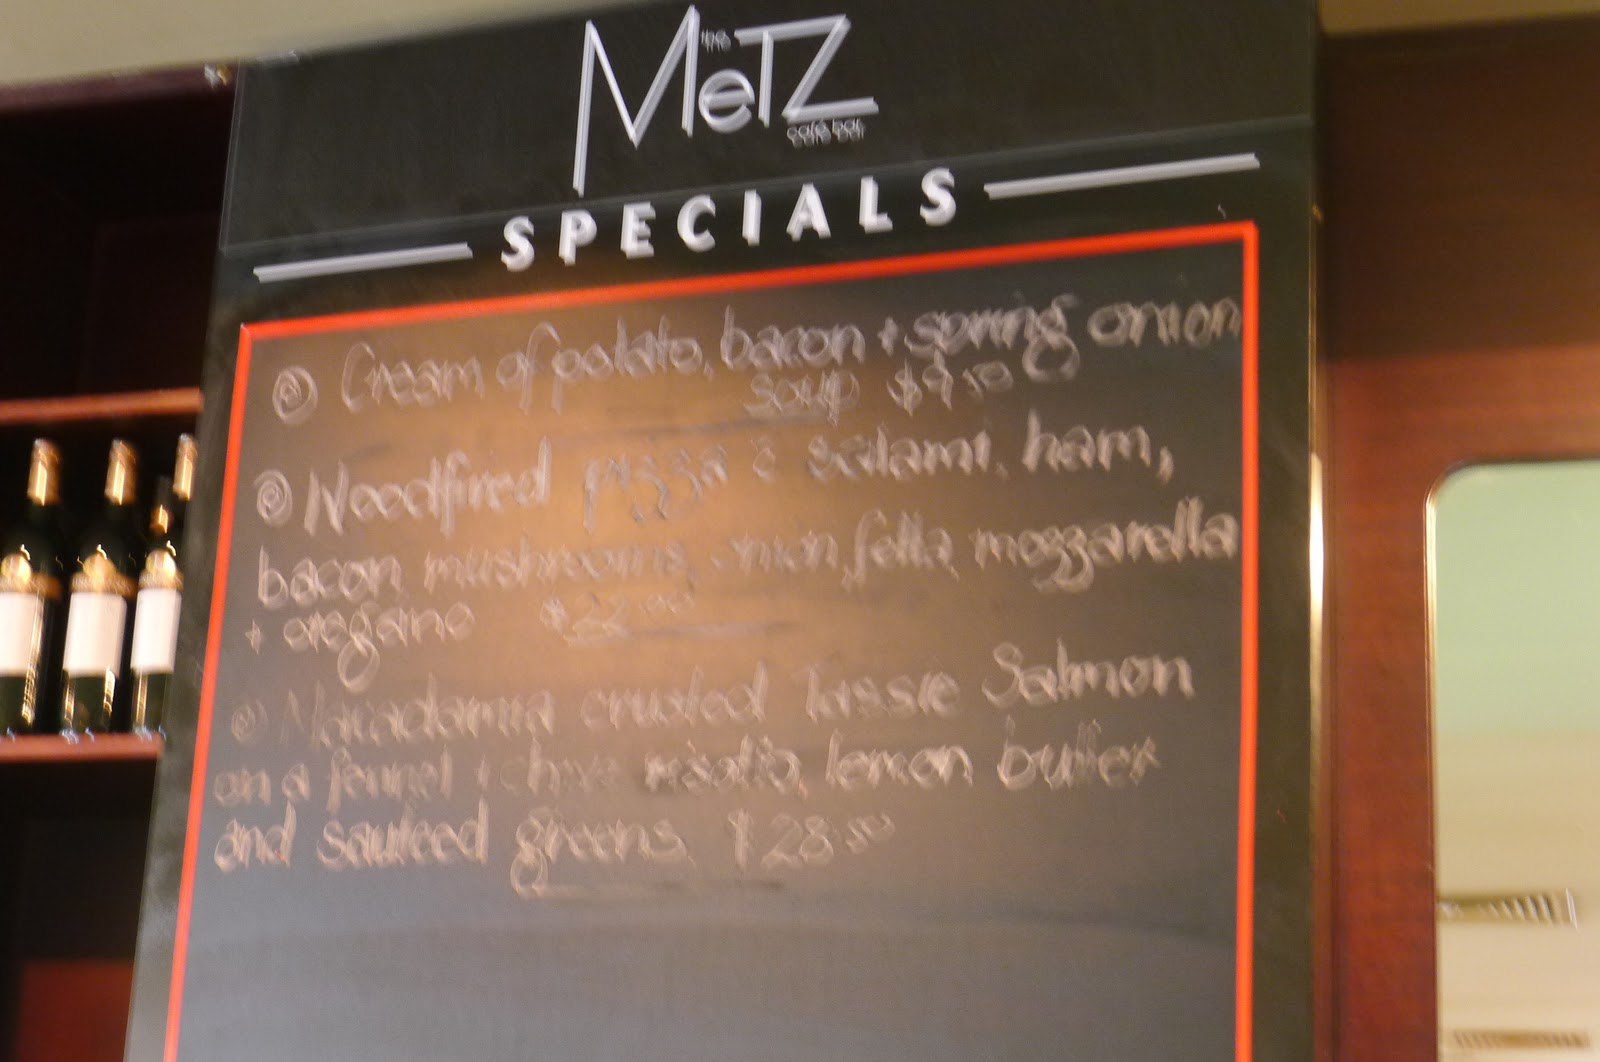 the
MeTZ
café bar
SPECIALS
Cream of potato, bacon + spring onion
soup $9.50
Woodfired pizza c salami, ham,
bacon mushrooms, onion, fetta, mozzarella
+ oregano $22.00
Macadamia crusted Tassie Salmon
on a fennel + chive risotto, lemon butter
and sauteed greens. $28.50